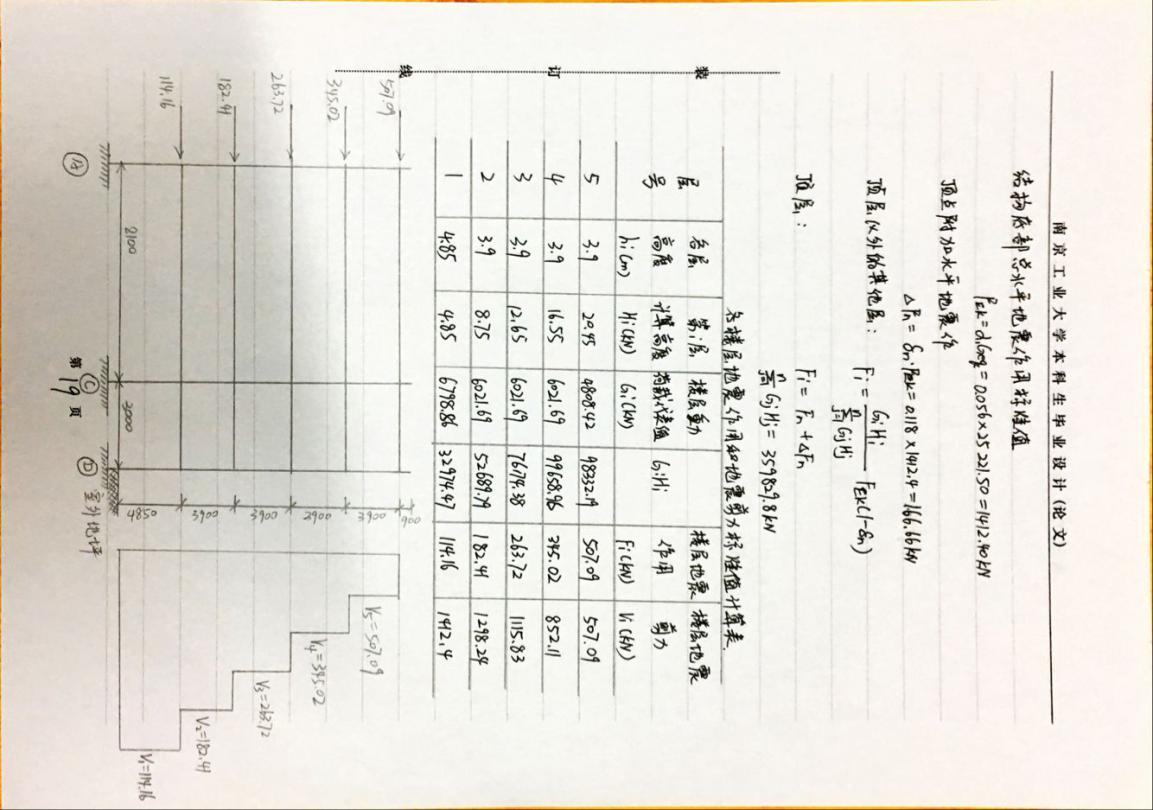 南京工业大学本科生毕业设计(论文)
结构底部总水平地震作用标准值
FEK=α1Geq=0.056×25221.50=1412.40kN
顶点附加水平地震作
ΔFn=δn·FEK=0.118×1412.4=166.66kN
顶层以外的其他层: Fi=GiHi/∑GjHj FEK(1-δn)
顶层: Fi=Fn+ΔFn
∑GjHj=359829.8kN
各楼层地震作用和地震剪力标准值计算表.
层号 各层高度hi(m) 第i层计算高度Hi(kN) 楼层重力荷载代表值Gi(kN) GiHi 楼层地震作用Fi(kN) 楼层地震剪力Vi(kN)
5 3.9 20.45 4808.42 98332.19 507.09 507.09
4 3.9 16.55 6021.69 99658.96 345.02 852.11
3 3.9 12.65 6021.69 76174.38 263.72 1115.83
2 3.9 8.75 6021.69 52689.79 182.41 1298.24
1 4.85 4.85 6798.86 32974.47 114.16 1412.4
装 订 线
507.09
345.02
263.72
182.41
114.16
900
3900
3900
3900
3900
4850
V5=507.09
V4=345.02
V3=263.72
V2=182.41
V1=114.16
8100
3000
A
C
D
室外地坪
第 19 页